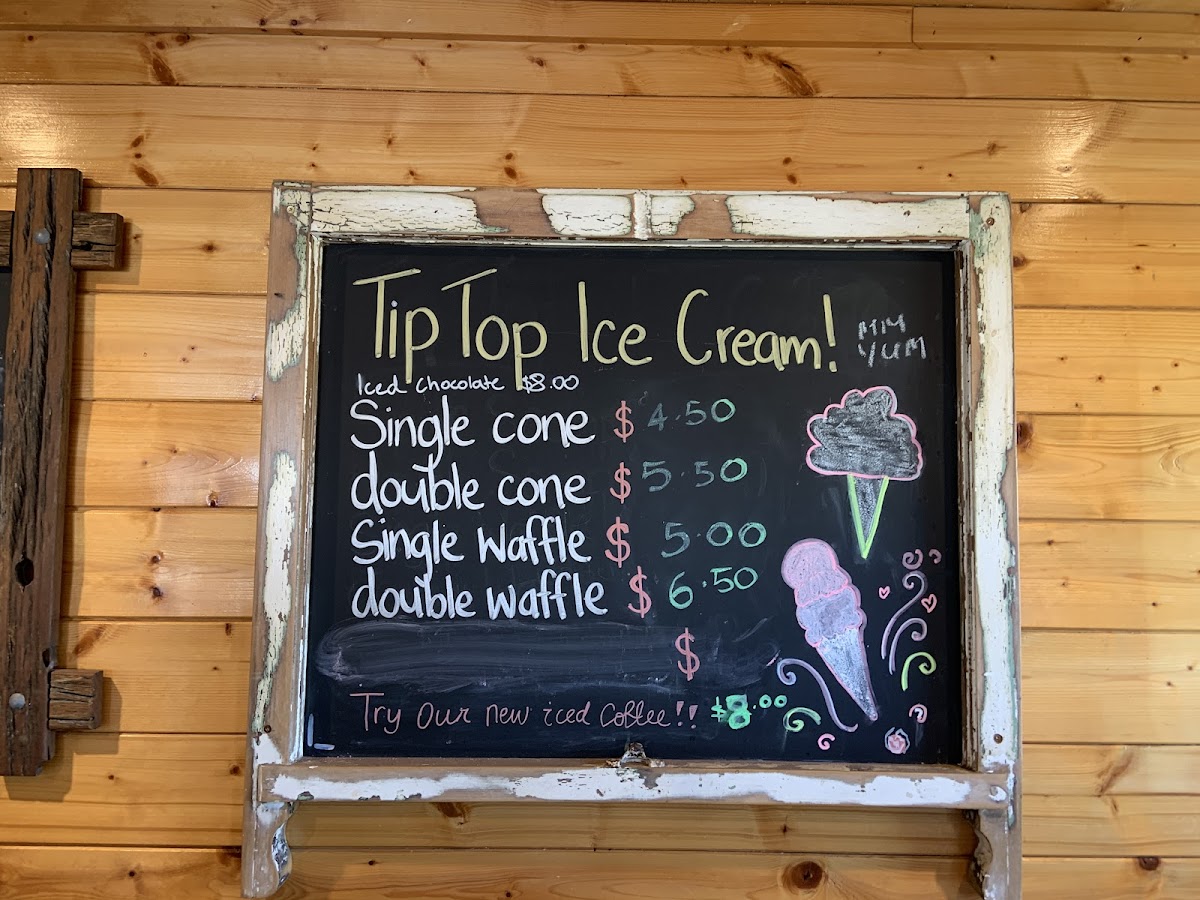 Tip Top Ice Cream!
MM
YUM
Iced Chocolate $8.00
Single cone $4.50
double cone $5.50
Single waffle $5.00
double waffle $6.50
$
Try our new iced Coffee!! $8.00